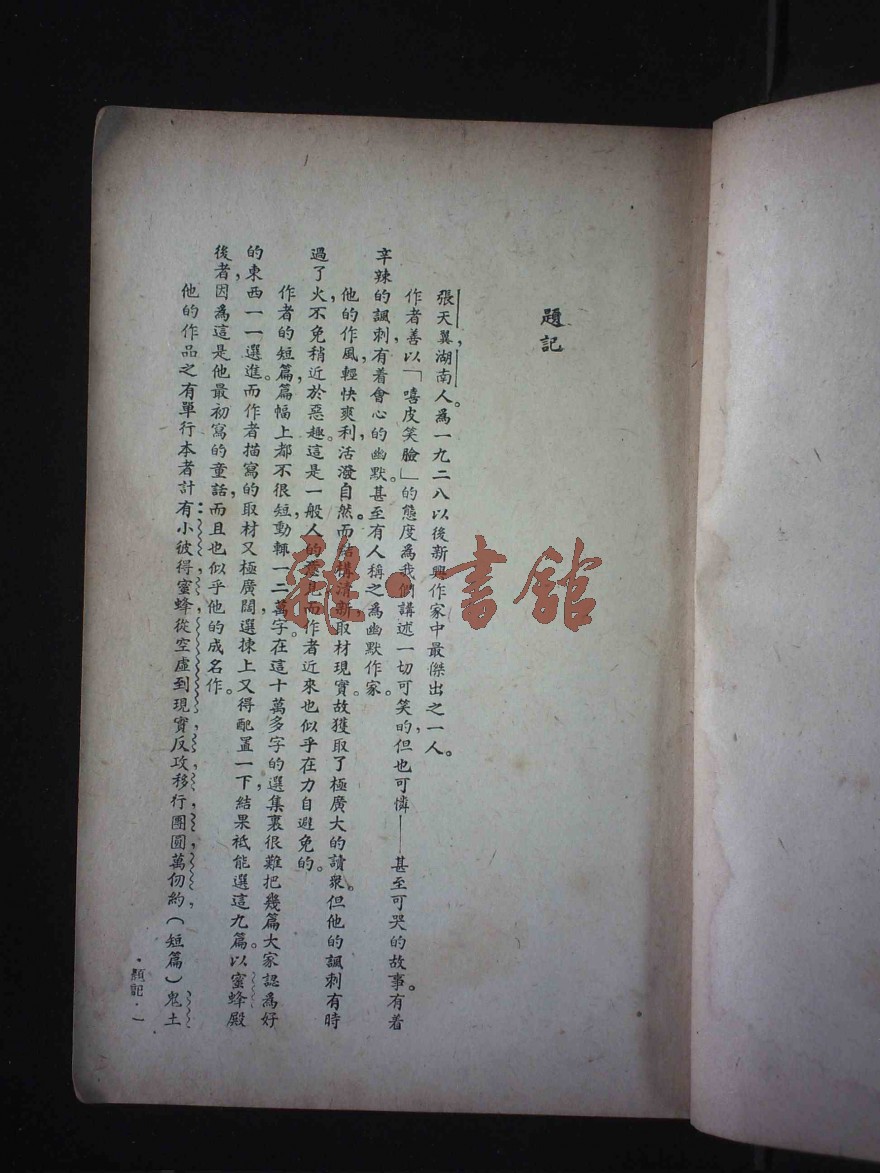 題記
張天翼,湖南人。為一九二八以後新興作家中最傑出之一人。
作者善以「嘻皮笑臉」的態度為我們講述一切可笑的,但也可憐——甚至可哭的故事。有着
辛辣的諷刺,有着會心的幽默。甚至有人稱之為幽默作家。
他的作風輕快爽利,活潑自然。而結構清新,取材現實。故獲取了極廣大的讀衆。但他的諷刺有時
過了火,不免稍近於惡趣。這是一般人的意見,而作者近來也似乎在力自避免的。
作者的短篇,篇幅上都不很短,動輒一二萬字。在這十萬多字的選集裏,很難把幾篇大家認為好
的東西一一選進。而作者描寫的取材又極廣闊,選揀上又得配置一下,結果祗能選這九篇。以蜜蜂殿
後者,因為這是他最初寫的童話,而且也似乎他的成名作。
他的作品之有單行本者,計有:小彼得,蜜蜂,從空虛到現實,反攻,移行,團圓,萬仞約,(短篇)鬼土
•題記•一
雜•書館